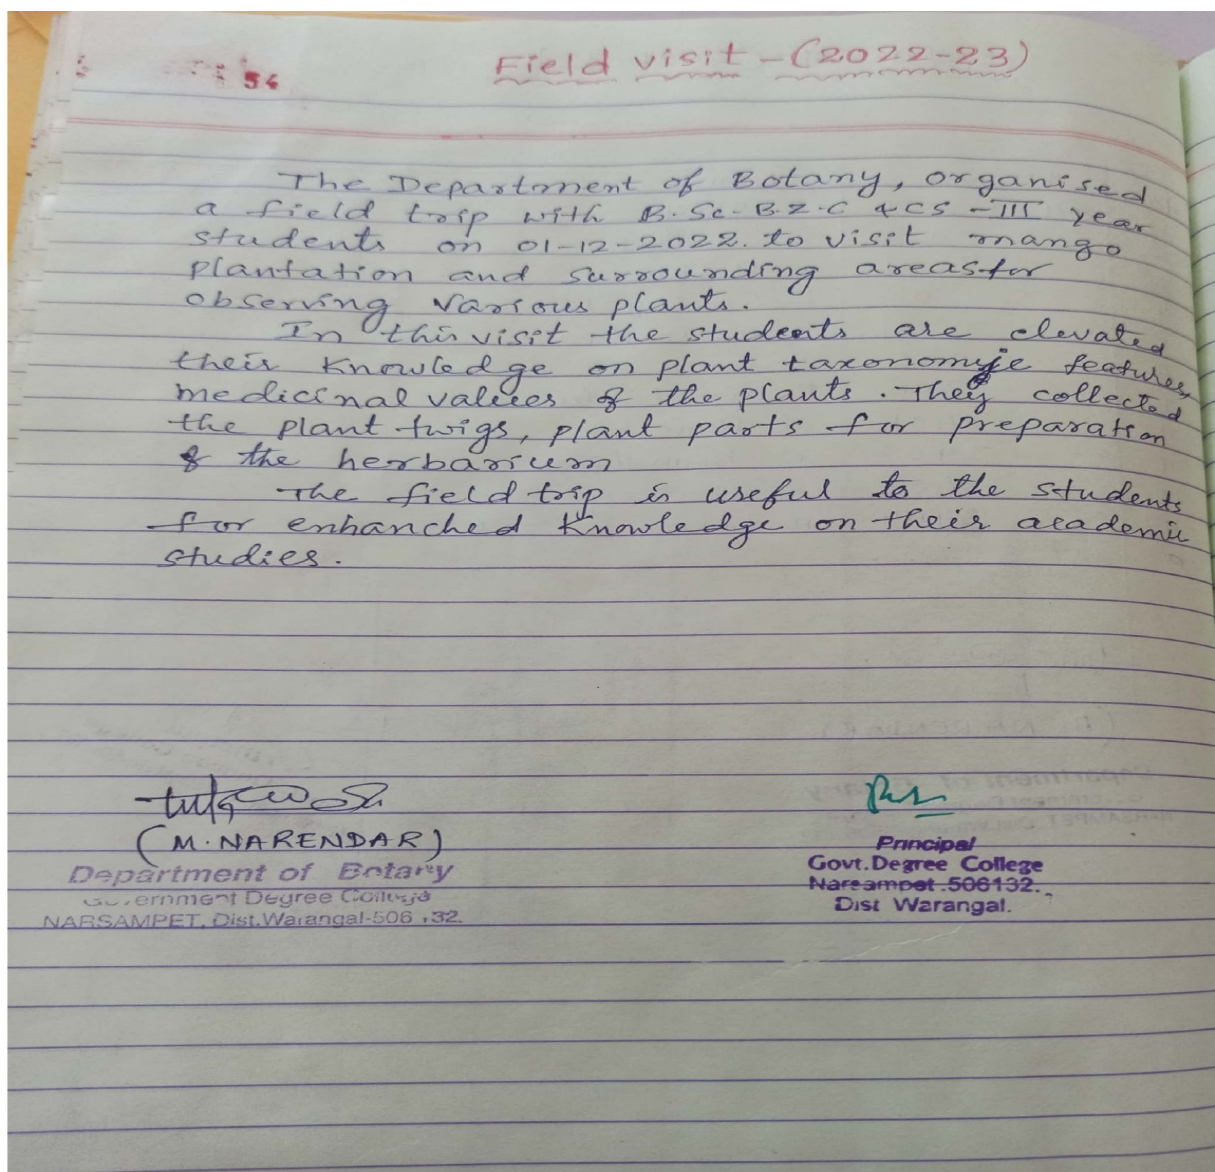 54
Field visit - (2022-23)
The Department of Botany, organised
a field trip with B.Sc- B.Z.C & CS - III year
students on 01-12-2022. to visit mango
plantation and surrounding areas for
observing various plants.
In this visit the students are elevated
their knowledge on plant taxonomije features,
medicinal values of the plants. They collected
the plant twigs, plant parts for preparation
of the herbarium
The field trip is useful to the students
for enhanched knowledge on their academic
studies.
(M. NARENDAR)
Department of Botany
Government Degree College
NARSAMPET, Dist.Warangal-506 132.
Principal
Govt. Degree College
Narsampet.506132.
Dist Warangal.